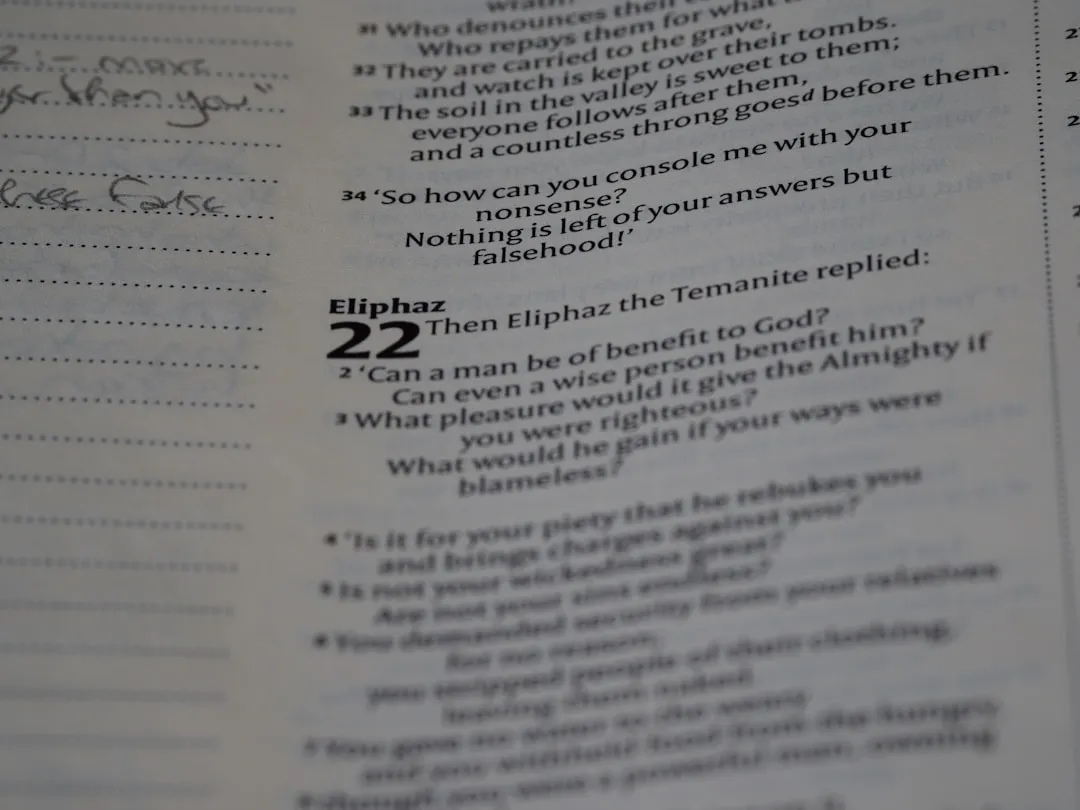 then you"
False
31 Who denounces their
Who repays them for what
32 They are carried to the grave,
and watch is kept over their tombs.
33 The soil in the valley is sweet to them;
everyone follows after them,
and a countless throng goesd before them.
34 ‘So how can you console me with your
nonsense?
Nothing is left of your answers but
falsehood!’
Eliphaz
22 Then Eliphaz the Temanite replied:
2 ‘Can a man be of benefit to God?
Can even a wise person benefit him?
3 What pleasure would it give the Almighty if
you were righteous?
What would he gain if your ways were
blameless?
4 ‘Is it for your piety that he rebukes you
and brings charges against you?
5 Is not your wickedness great?
Are not your sins endless?
6 You demanded security from your relatives
for no reason;
you stripped people of their clothing,
leaving them naked.
7 You gave no water to the weary
and you withheld food from the hungry,
8 though you were a powerful man, owning